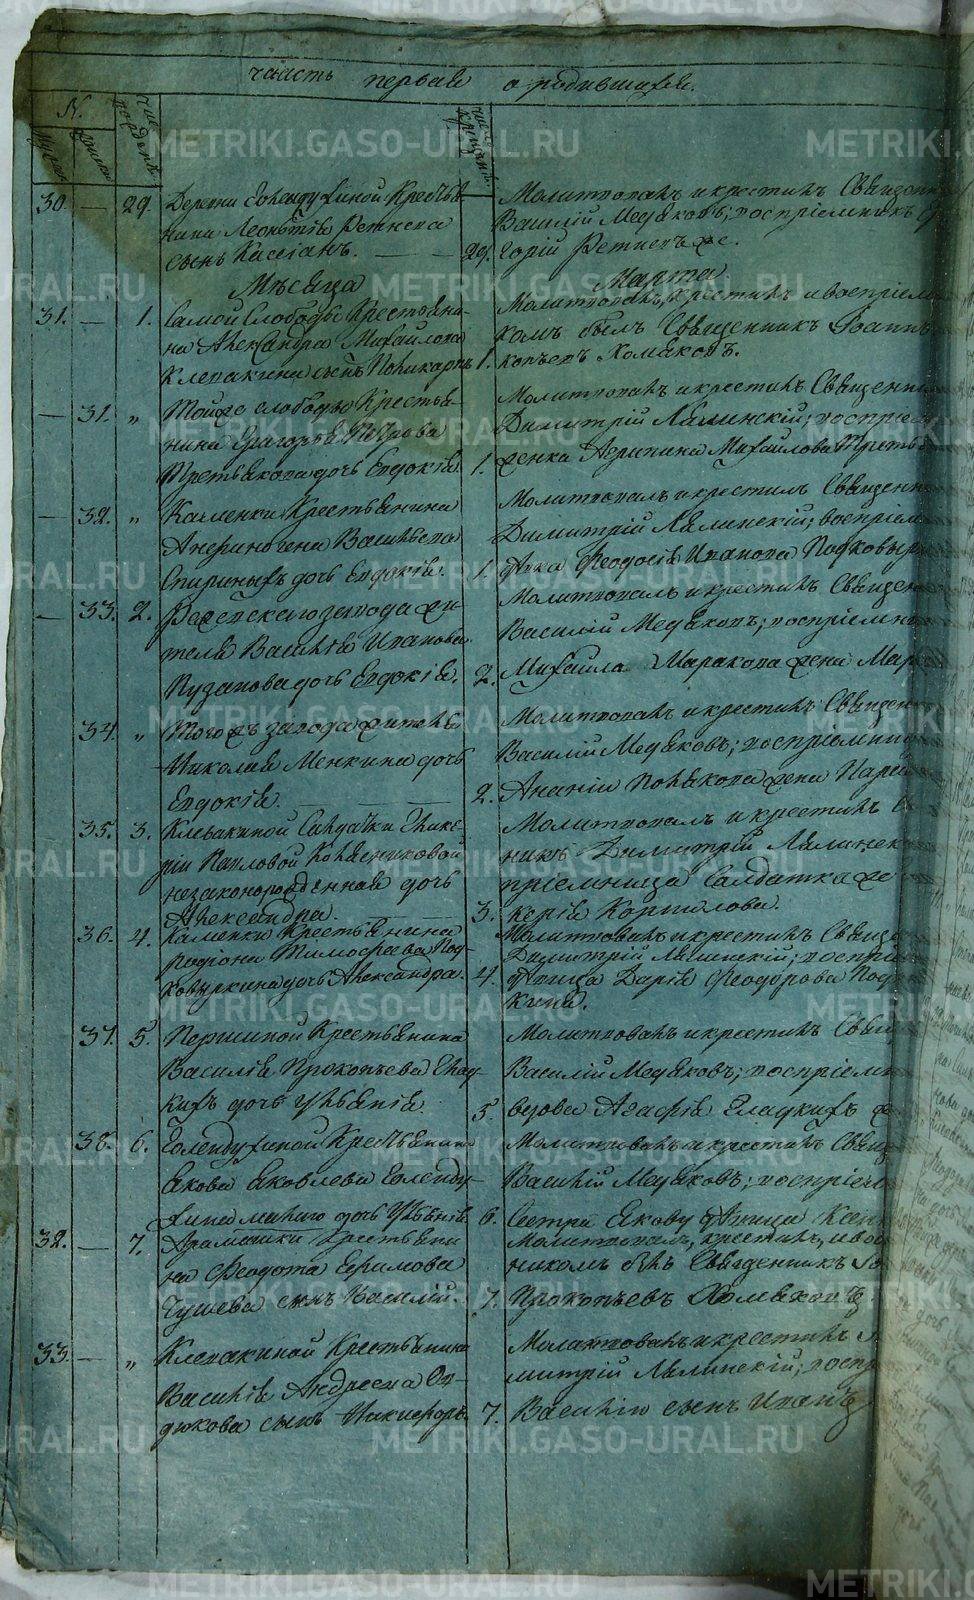 часть первая о родившихся.
N.
30. — 29. Деревни Голендухиной Крестья-
нина Леонтія Ретнева
сынъ Кассіанъ. — — 29.
Молитвовалъ и крестилъ Священ
Василій Медяковъ; воспріемникъ
горій Ретневъ же.
Мѣсяца Марта
31. — 1. Самой Слободы Крестьяни-
на Александра Михайлова
Клевакина сынъ Поликарпъ 1.
Молитвовалъ, крестилъ и воспріем
комъ былъ Священникъ Іоаннъ
копьевъ Хомяковъ.
— 31. „ Тойже слободы Крестья-
нина Григорья Петрова
Третьякова дочь Евдокія. 1.
Молитвовалъ и крестилъ Священни
Димитрій Лялинскій; воспріе
женка Агрипина Михайлова Третья
— 32. „ Каменки Крестьянина
Анфиногена Васильева
Спириныхъ дочь Евдокія. 1.
Молитвовалъ и крестилъ Священн
Димитрій Лялинскій; воспріем
дѣвка Феодосія Иванова Подковыр
— 33. 2. Режевскаго завода жи-
теля Василія Иванова
Пузанова дочь Евдокія. 2.
Молитвовалъ и крестилъ Священ
Василій Медяковъ; воспріемни
Михайла Маракова жена Мар
34. „ Того жъ завода жителя
Николая Менкина дочь
Евдокія. — — 2.
Молитвовалъ и крестилъ Священ
Василій Медяковъ; воспріемни
Ананіи Полякова жена Парас
35. 3. Клевакиной Салдатки Глике-
ріи Павловой Колясниковой
незаконорожденная дочь
Александра. — — 3.
Молитвовалъ и крестилъ С
никъ Димитрій Лялинск
пріемница Салдатка же
керія Корнилова.
36. 4. Каменки Крестьянина
Родіона Тимофеева Под-
ковыркина дочь Александра. 4.
Молитвовалъ и крестилъ Свяще
Димитрій Лялинскій; воспріе
дѣвица Дарія Феодорова Под
кина.
37. 5. Першиной Крестьянина
Василія Прокопьева Глад-
кихъ дочь Ульянія. 5.
Молитвовалъ и крестилъ Свящ
Василій Медяковъ; воспріем
вдова Агафія Гладкихъ ж
38. 6. Голендухиной Крестьянина
Якова Яковлева Голенду-
хина малаго дочь Ульянія. 6.
Молитвовалъ и крестилъ Свящ
Василій Медяковъ; воспріем
Сестра Якову дѣвица Ксен
32. — 7. Арамашки Крестьяни
на Феодота Ефимова
Чушева сынъ Василій. 7.
Молитвовалъ, крестилъ, и вос
никомъ былъ Священникъ Іо
Прокопьевъ Хомяковъ
33. — „ Клевакиной Крестьянина
Василія Андреева
дюкова сынъ Никифоръ. 7.
Молитвовалъ и крестилъ
митрій Лялинскій; воспр
Василію сынъ Иванъ
METRIKI.GASO-URAL.RU